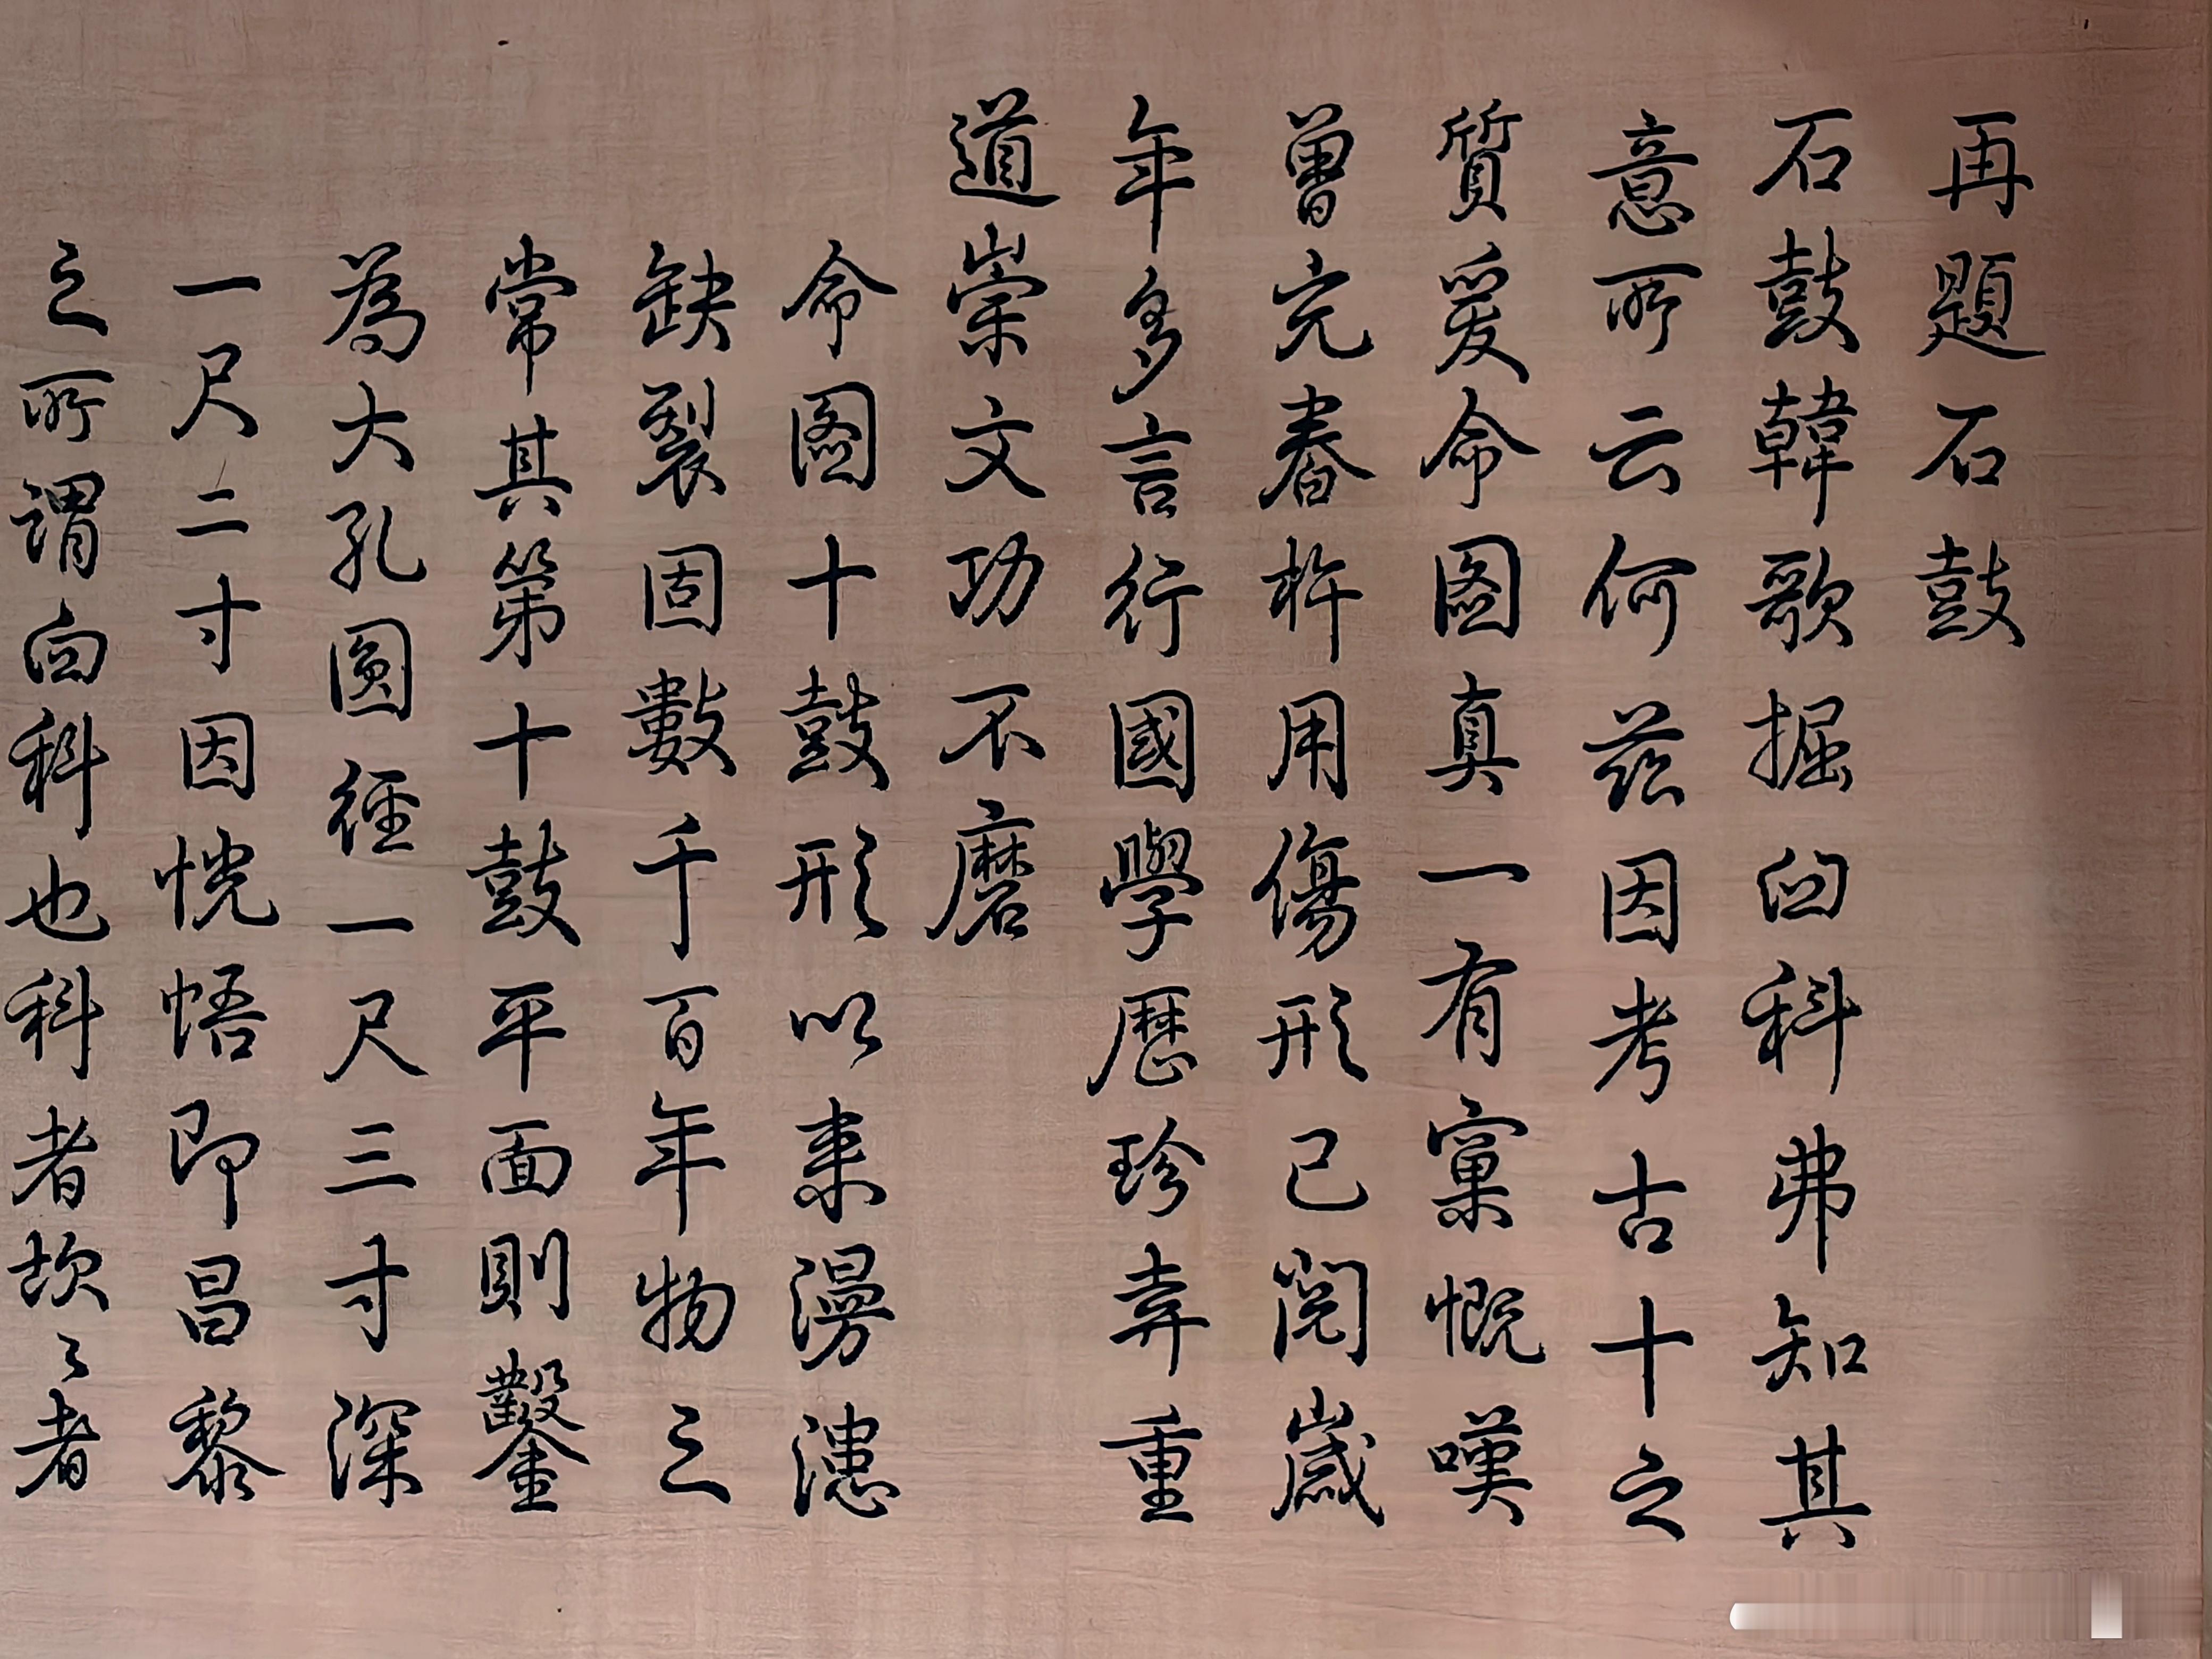 再題石鼓
石鼓韓歌掘臼科弗知其
意所云何茲因考古十之
質爰命圖真一有窠慨嘆
曾完舂杵用傷形已閱歲
年多言行國學歷珍弆重
道崇文功不磨
命圖十鼓形以來漫漶
缺裂固數千百年物之
常其第十鼓平面則鑿
為大孔圓徑一尺三寸深
一尺二寸因恍悟即昌黎
之所謂臼科也科者坎〻者